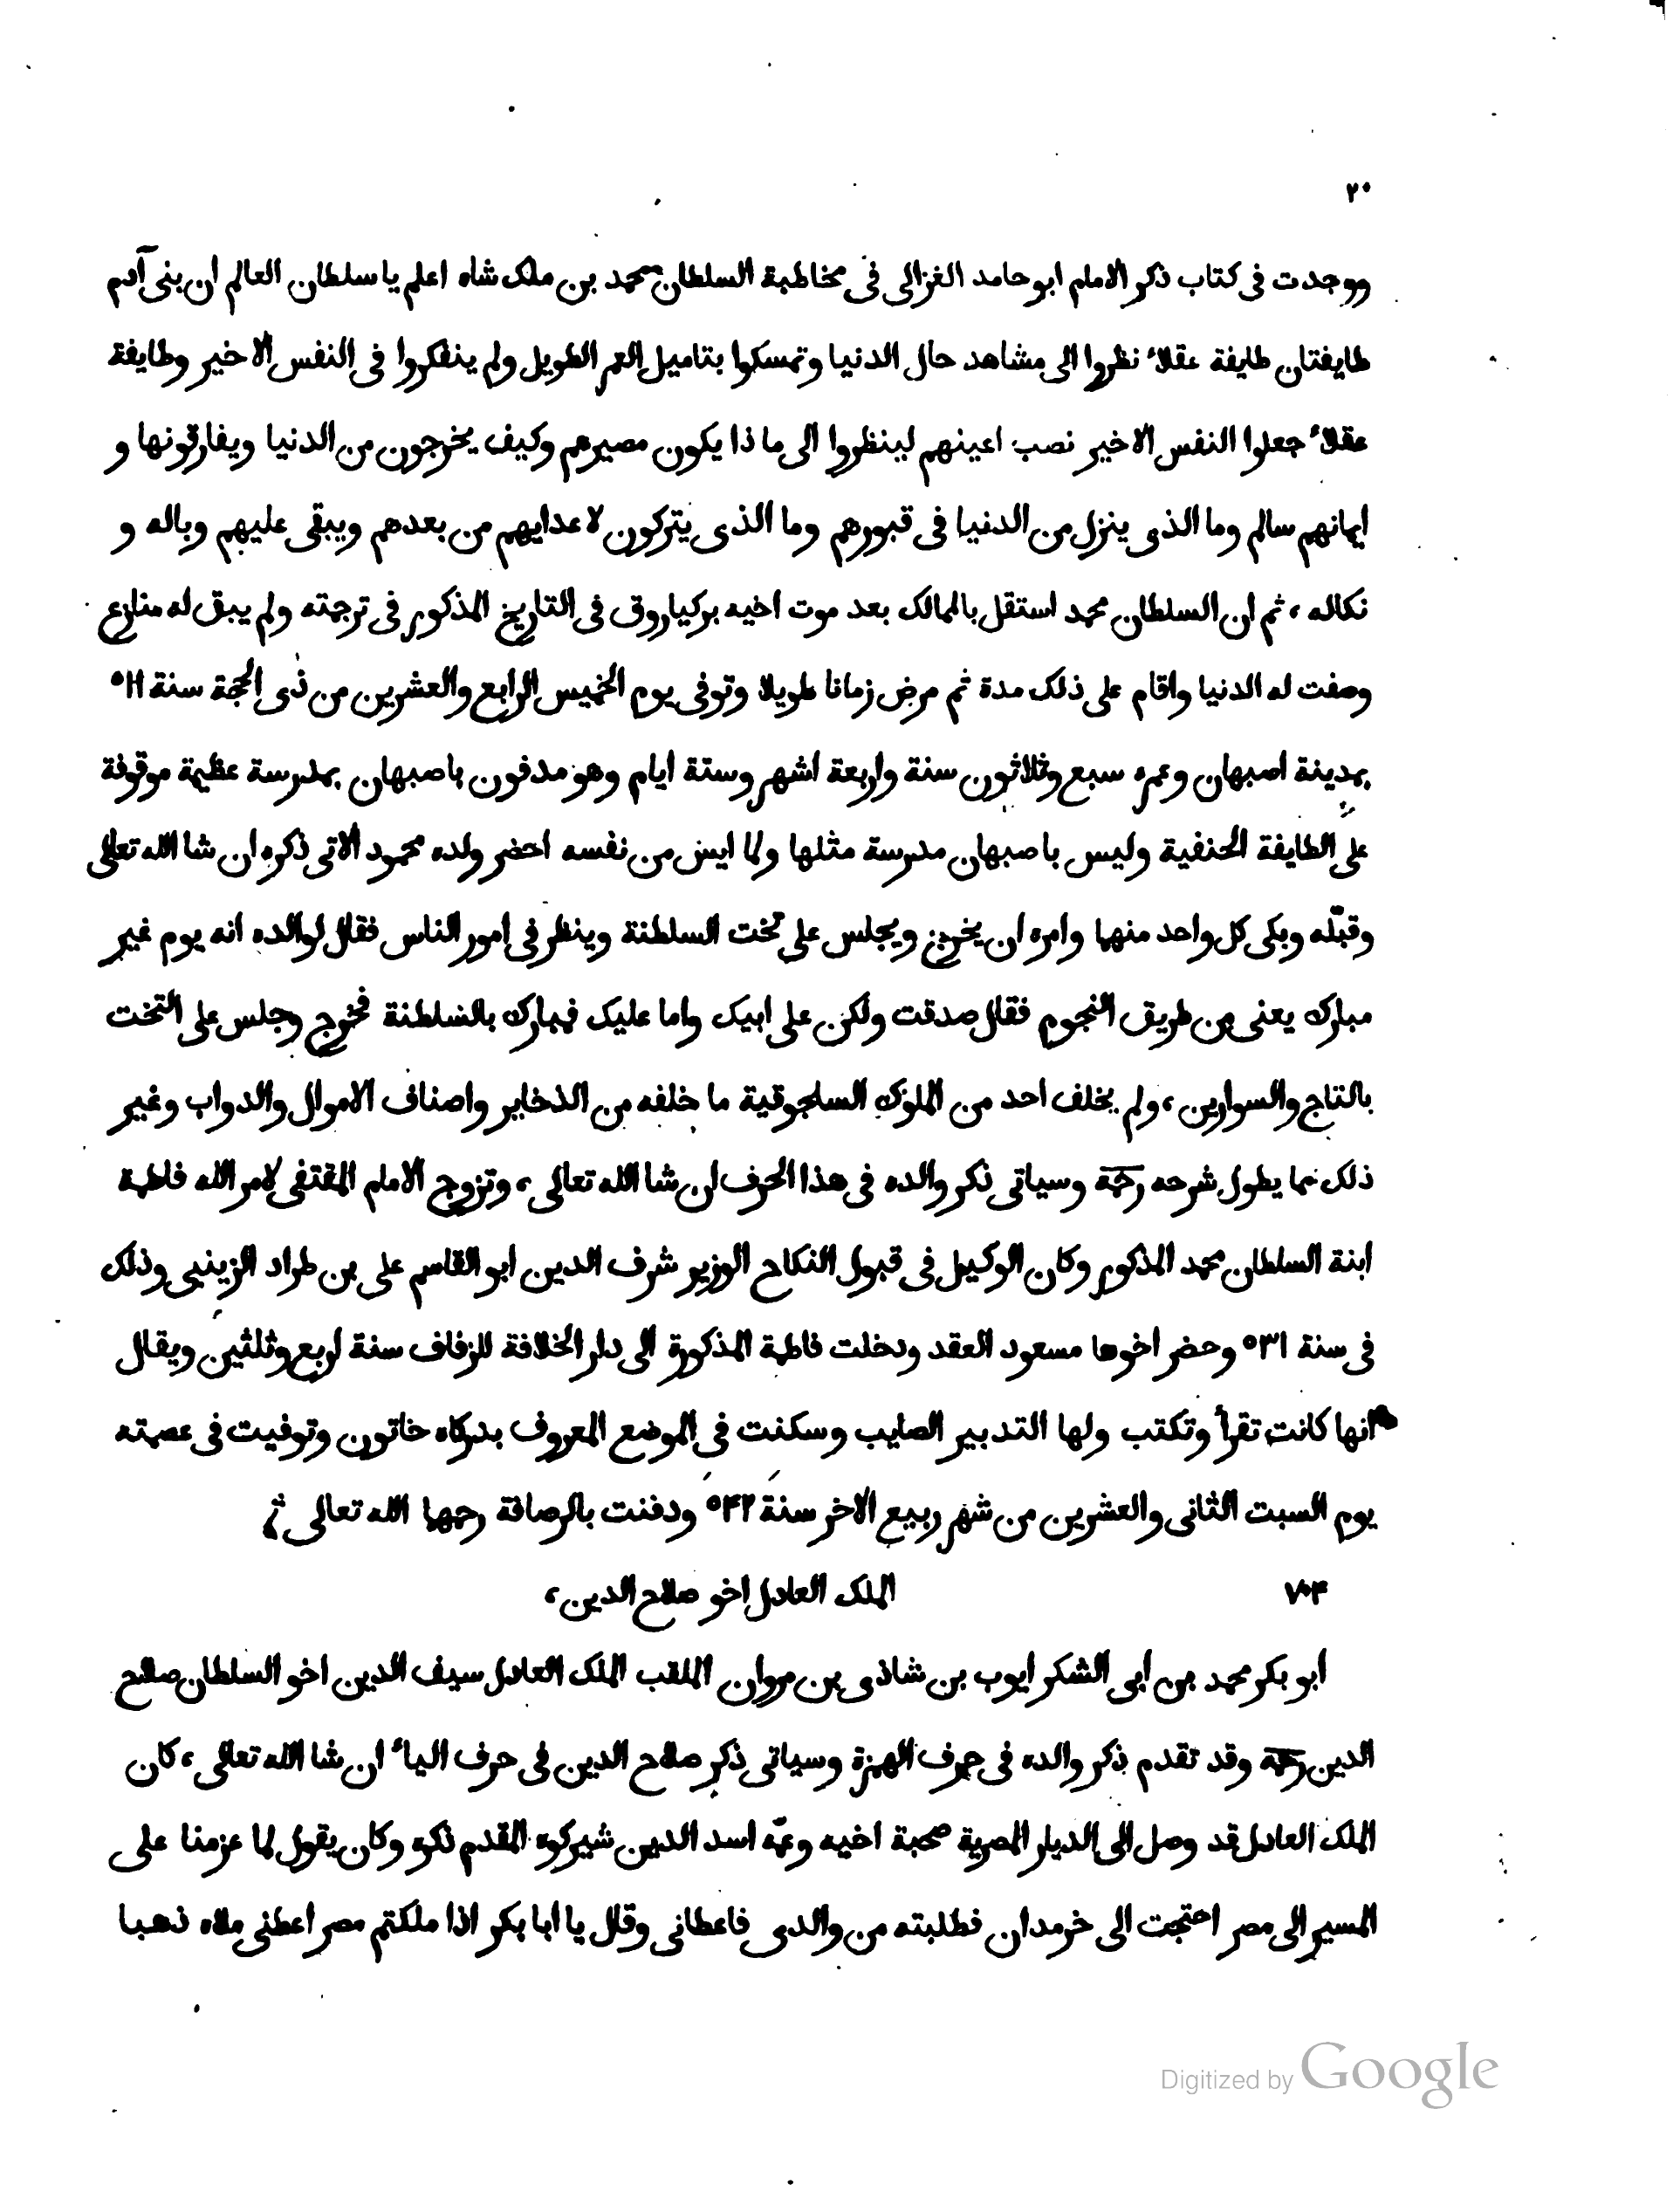 ٢٠
ووجدت فى كتاب ذكر الامام ابو حامد الغزالى فى مخاطبة السلطان محمد بن ملك شاه اعلم يا سلطان العالم ان بنى آدم
طايفتان طايفة عقلاء نظروا الى مشاهد حال الدنيا وتمسكوا بتاميل العمر الطويل ولم ينفكروا فى النفس الاخير وطايفة
عقلاء جعلوا النفس الاخير نصب اعينهم لينظروا الى ما ذا يكون مصيرهم وكيف يخرجون من الدنيا ويفارقونها و
ايمانهم سالم وما الذى ينزل من الدنيا فى قبورهم وما الذى يتركون لاعدايهم من بعدهم ويبقى عليهم وباله و
نكاله ، ثم ان السلطان محمد استقل بالممالك بعد موت اخيه بركياروق فى التاريخ المذكور فى ترجمته ولم يبق له منازع
وصفت له الدنيا واقام على ذلك مدة ثم مرض زمانا طويلا وتوفى يوم الخميس الرابع والعشرين من ذى الحجة سنة ٥١١
بمدينة اصبهان وعمره سبع وثلاثون سنة واربعة اشهر وستة ايام وهو مدفون باصبهان بمدرسة عظيمة موقوفة
على الطايفة الحنفية وليس باصبهان مدرسة مثلها ولما ايس من نفسه احضر ولده محمود الاتى ذكره ان شا الله تعالى
وقبّله وبكى كل واحد منهما وامره ان يخرج ويجلس على تخت السلطنة وينظر فى امور الناس فقال لوالده انه يوم غير
مبارك يعنى من طريق النجوم فقال صدقت ولكن على ابيك واما عليك فمبارك بالسلطنة فخرج وجلس على التخت
بالتاج والسوارين ، ولم يخلف احد من الملوك السلجوقية ما خلفه من الذخاير واصناف الاموال والدواب وغير
ذلك مما يطول شرحه رحمه وسياتى ذكر والده فى هذا الحرف ان شا الله تعالى ، وتزوج الامام المقتفى لامر الله فاطمة
ابنة السلطان محمد المذكور وكان الوكيل فى قبول النكاح الوزير شرف الدين ابو القاسم على بن طراد الزينبى وذلك
فى سنة ٥٣١ وحضر اخوها مسعود العقد ودخلت فاطمة المذكورة الى دار الخلافة للزفاف سنة اربع وثلثين ويقال
انها كانت تقرأ وتكتب ولها التدبير الصايب وسكنت فى الموضع المعروف بدركاه خاتون وتوفيت فى عصمته
يوم السبت الثانى والعشرين من شهر ربيع الاخر سنة ٥٤٢ ودفنت بالرصافة رحمها الله تعالى
٧٠٤ الملك العادل اخو صلاح الدين ،
ابو بكر محمد بن ابى الشكر ايوب بن شاذى بن مروان الملقب الملك العادل سيف الدين اخو السلطان صلاح
الدين رحمه وقد تقدم ذكر والده فى حرف الهمزة وسياتى ذكر صلاح الدين فى حرف الياء ان شا الله تعالى ، كان
الملك العادل قد وصل الى الديار المصرية صحبة اخيه وعمّه اسد الدين شيركوه المقدم ذكره وكان يقول لما عزمنا على
المسير الى مصر احتجت الى خرمدان فطلبته من والدى فاعطانى وقال يا ابا بكر اذا ملكتم مصر اعطنى ملاه ذهبا
Digitized by Google